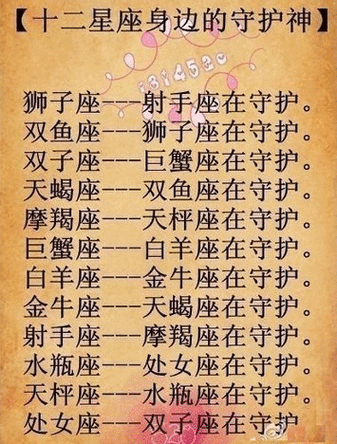 【十二星座身边的守护神】
1314520
狮子座---射手座在守护。
双鱼座---狮子座在守护。
双子座---巨蟹座在守护。
天蝎座---双鱼座在守护。
摩羯座---天枰座在守护。
巨蟹座---白羊座在守护。
白羊座---金牛座在守护。
金牛座---天蝎座在守护。
射手座---摩羯座在守护。
水瓶座---处女座在守护。
天枰座---水瓶座在守护。
处女座---双子座在守护